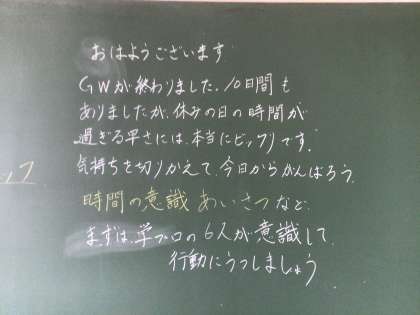 おはようございます
GWが終わりました。10日間も
ありましたが、休みの日の時間が
過ぎる早さには、本当にビックリです。
気持ちを切りかえて、今日からがんばろう。
ップ
時間の意識 あいさつ など。
まずは、学プロの6人が意識して
行動にうつしましょう